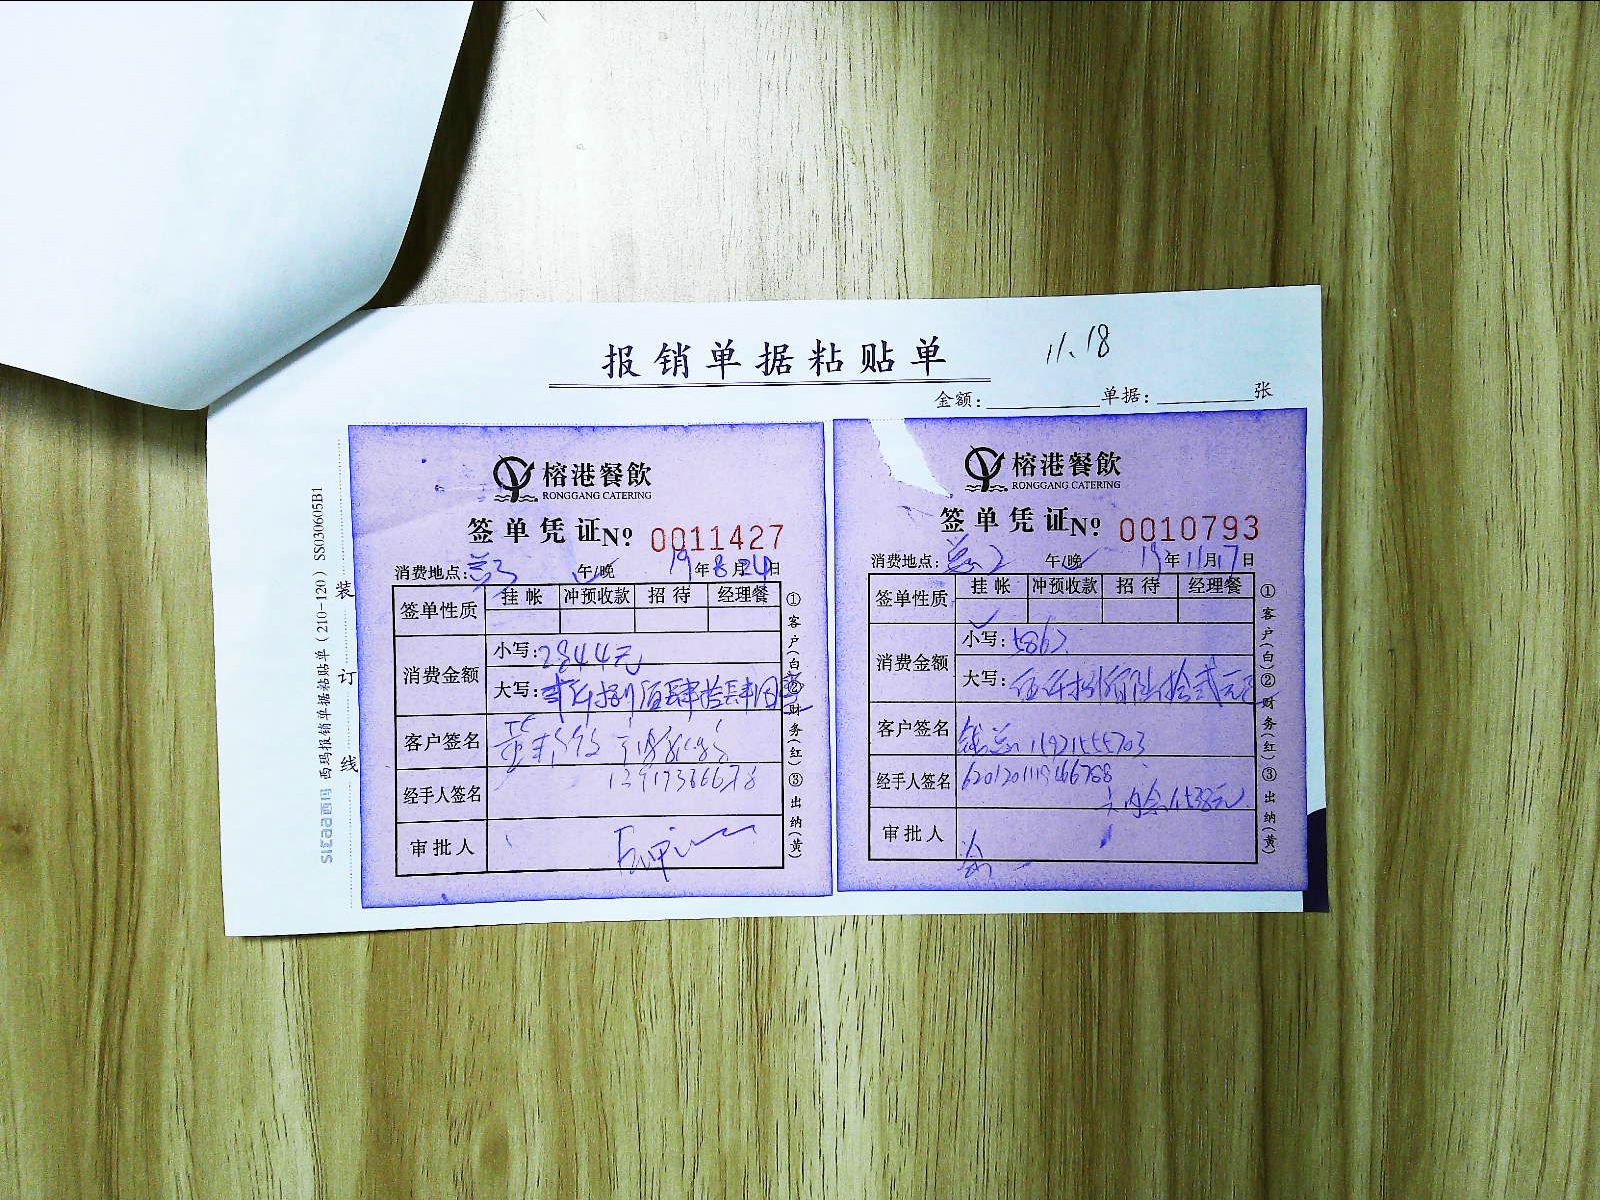 报销单据粘贴单
11.18
金额：
单据：
张
西玛报销单据粘贴单（210-120）SS030605B1
装
订
线
榕港餐飲
RONGGANG CATERING
签单凭证No 0011427
消费地点：
午/晚
19年8月24日
签单性质
挂帐
冲预收款
招待
经理餐
消费金额
小写：2844元
大写：
客户签名
经手人签名
审批人
①客户（白）②财务（红）③出纳（黄）
榕港餐飲
RONGGANG CATERING
签单凭证No 0010793
消费地点：
午/晚
19年11月17日
签单性质
挂帐
冲预收款
招待
经理餐
消费金额
小写：
大写：伍仟捌佰陆拾贰元
客户签名
经手人签名
审批人
①客户（白）②财务（红）③出纳（黄）